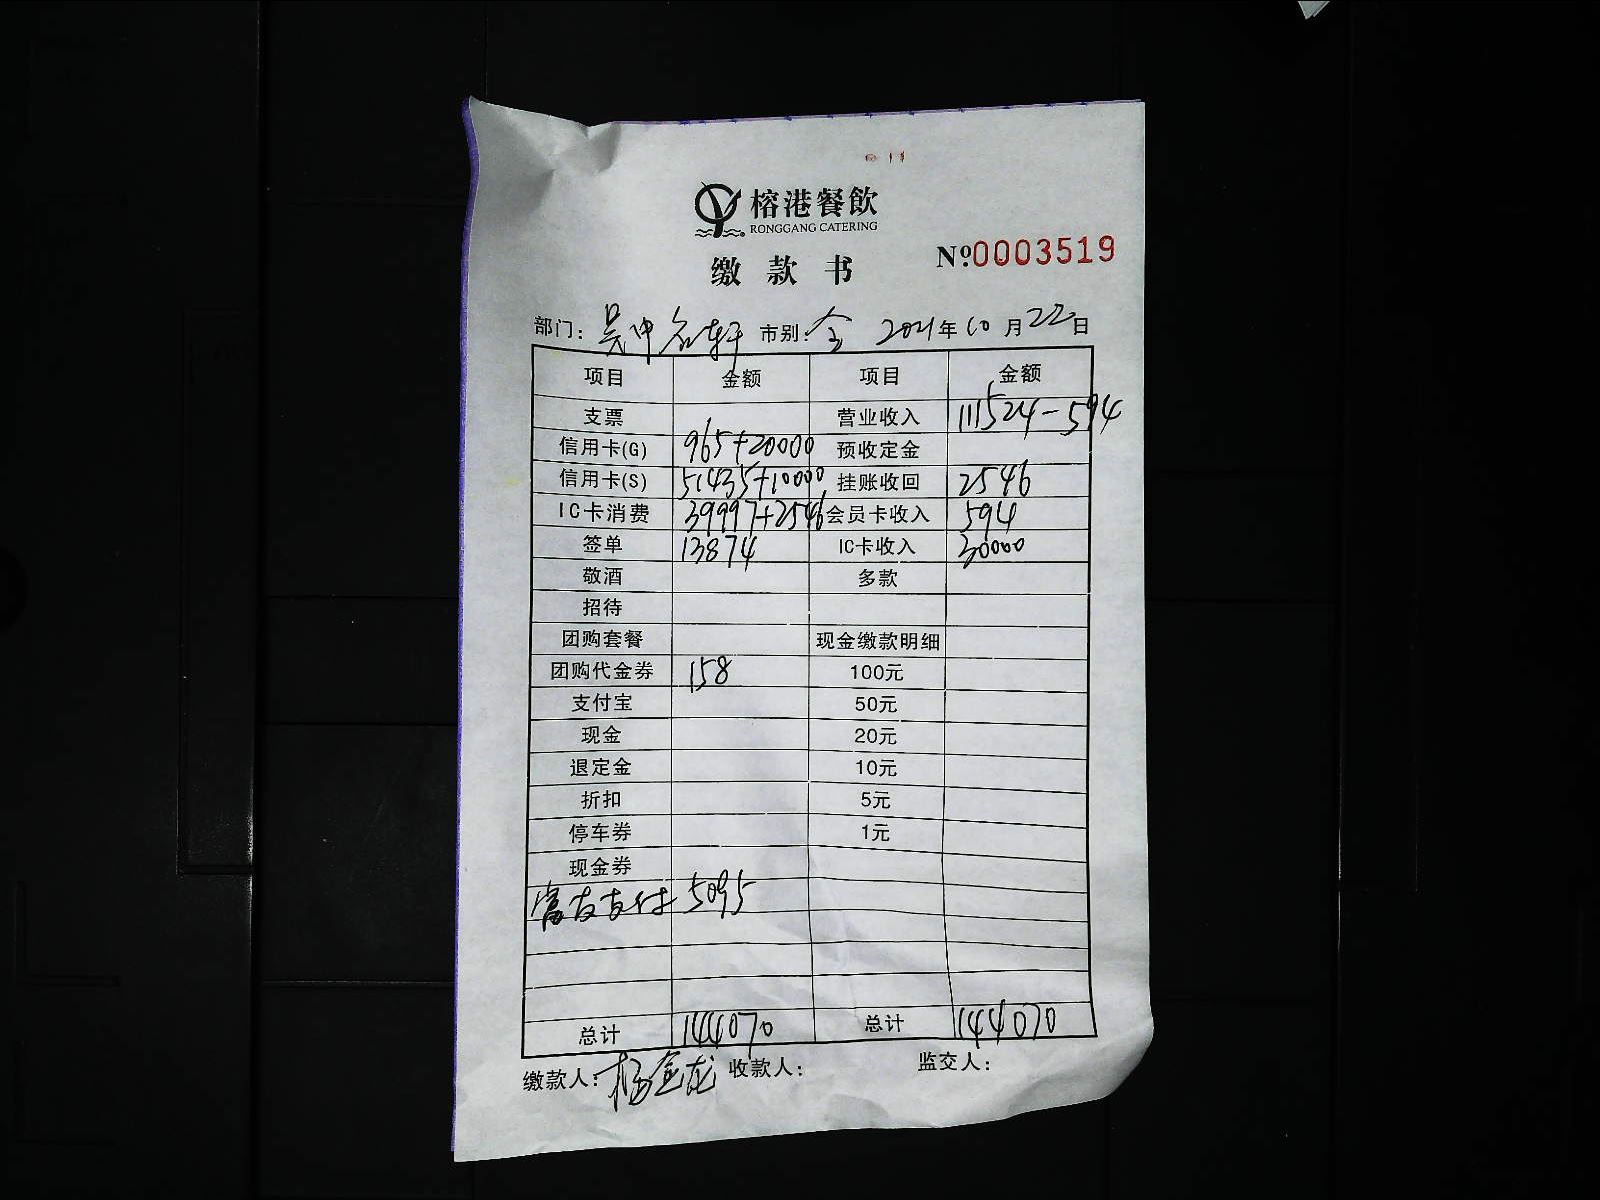 榕港餐飲
RONGGANG CATERING
缴款书
No.0003519
部门：吴中名轩 市别：全 2021年10月22日
项目 金额 项目 金额
支票 营业收入 111524-594
信用卡(G) 965+20000 预收定金
信用卡(S) 51435+10000 挂账收回 2546
IC卡消费 39997+2546 会员卡收入 594
签单 13874 IC卡收入 30000
敬酒 多款
招待
团购套餐 现金缴款明细
团购代金券 158 100元
支付宝 50元
现金 20元
退定金 10元
折扣 5元
停车券 1元
现金券
富友支付 5095
总计 144070 总计 144070
缴款人：杨金龙 收款人： 监交人：